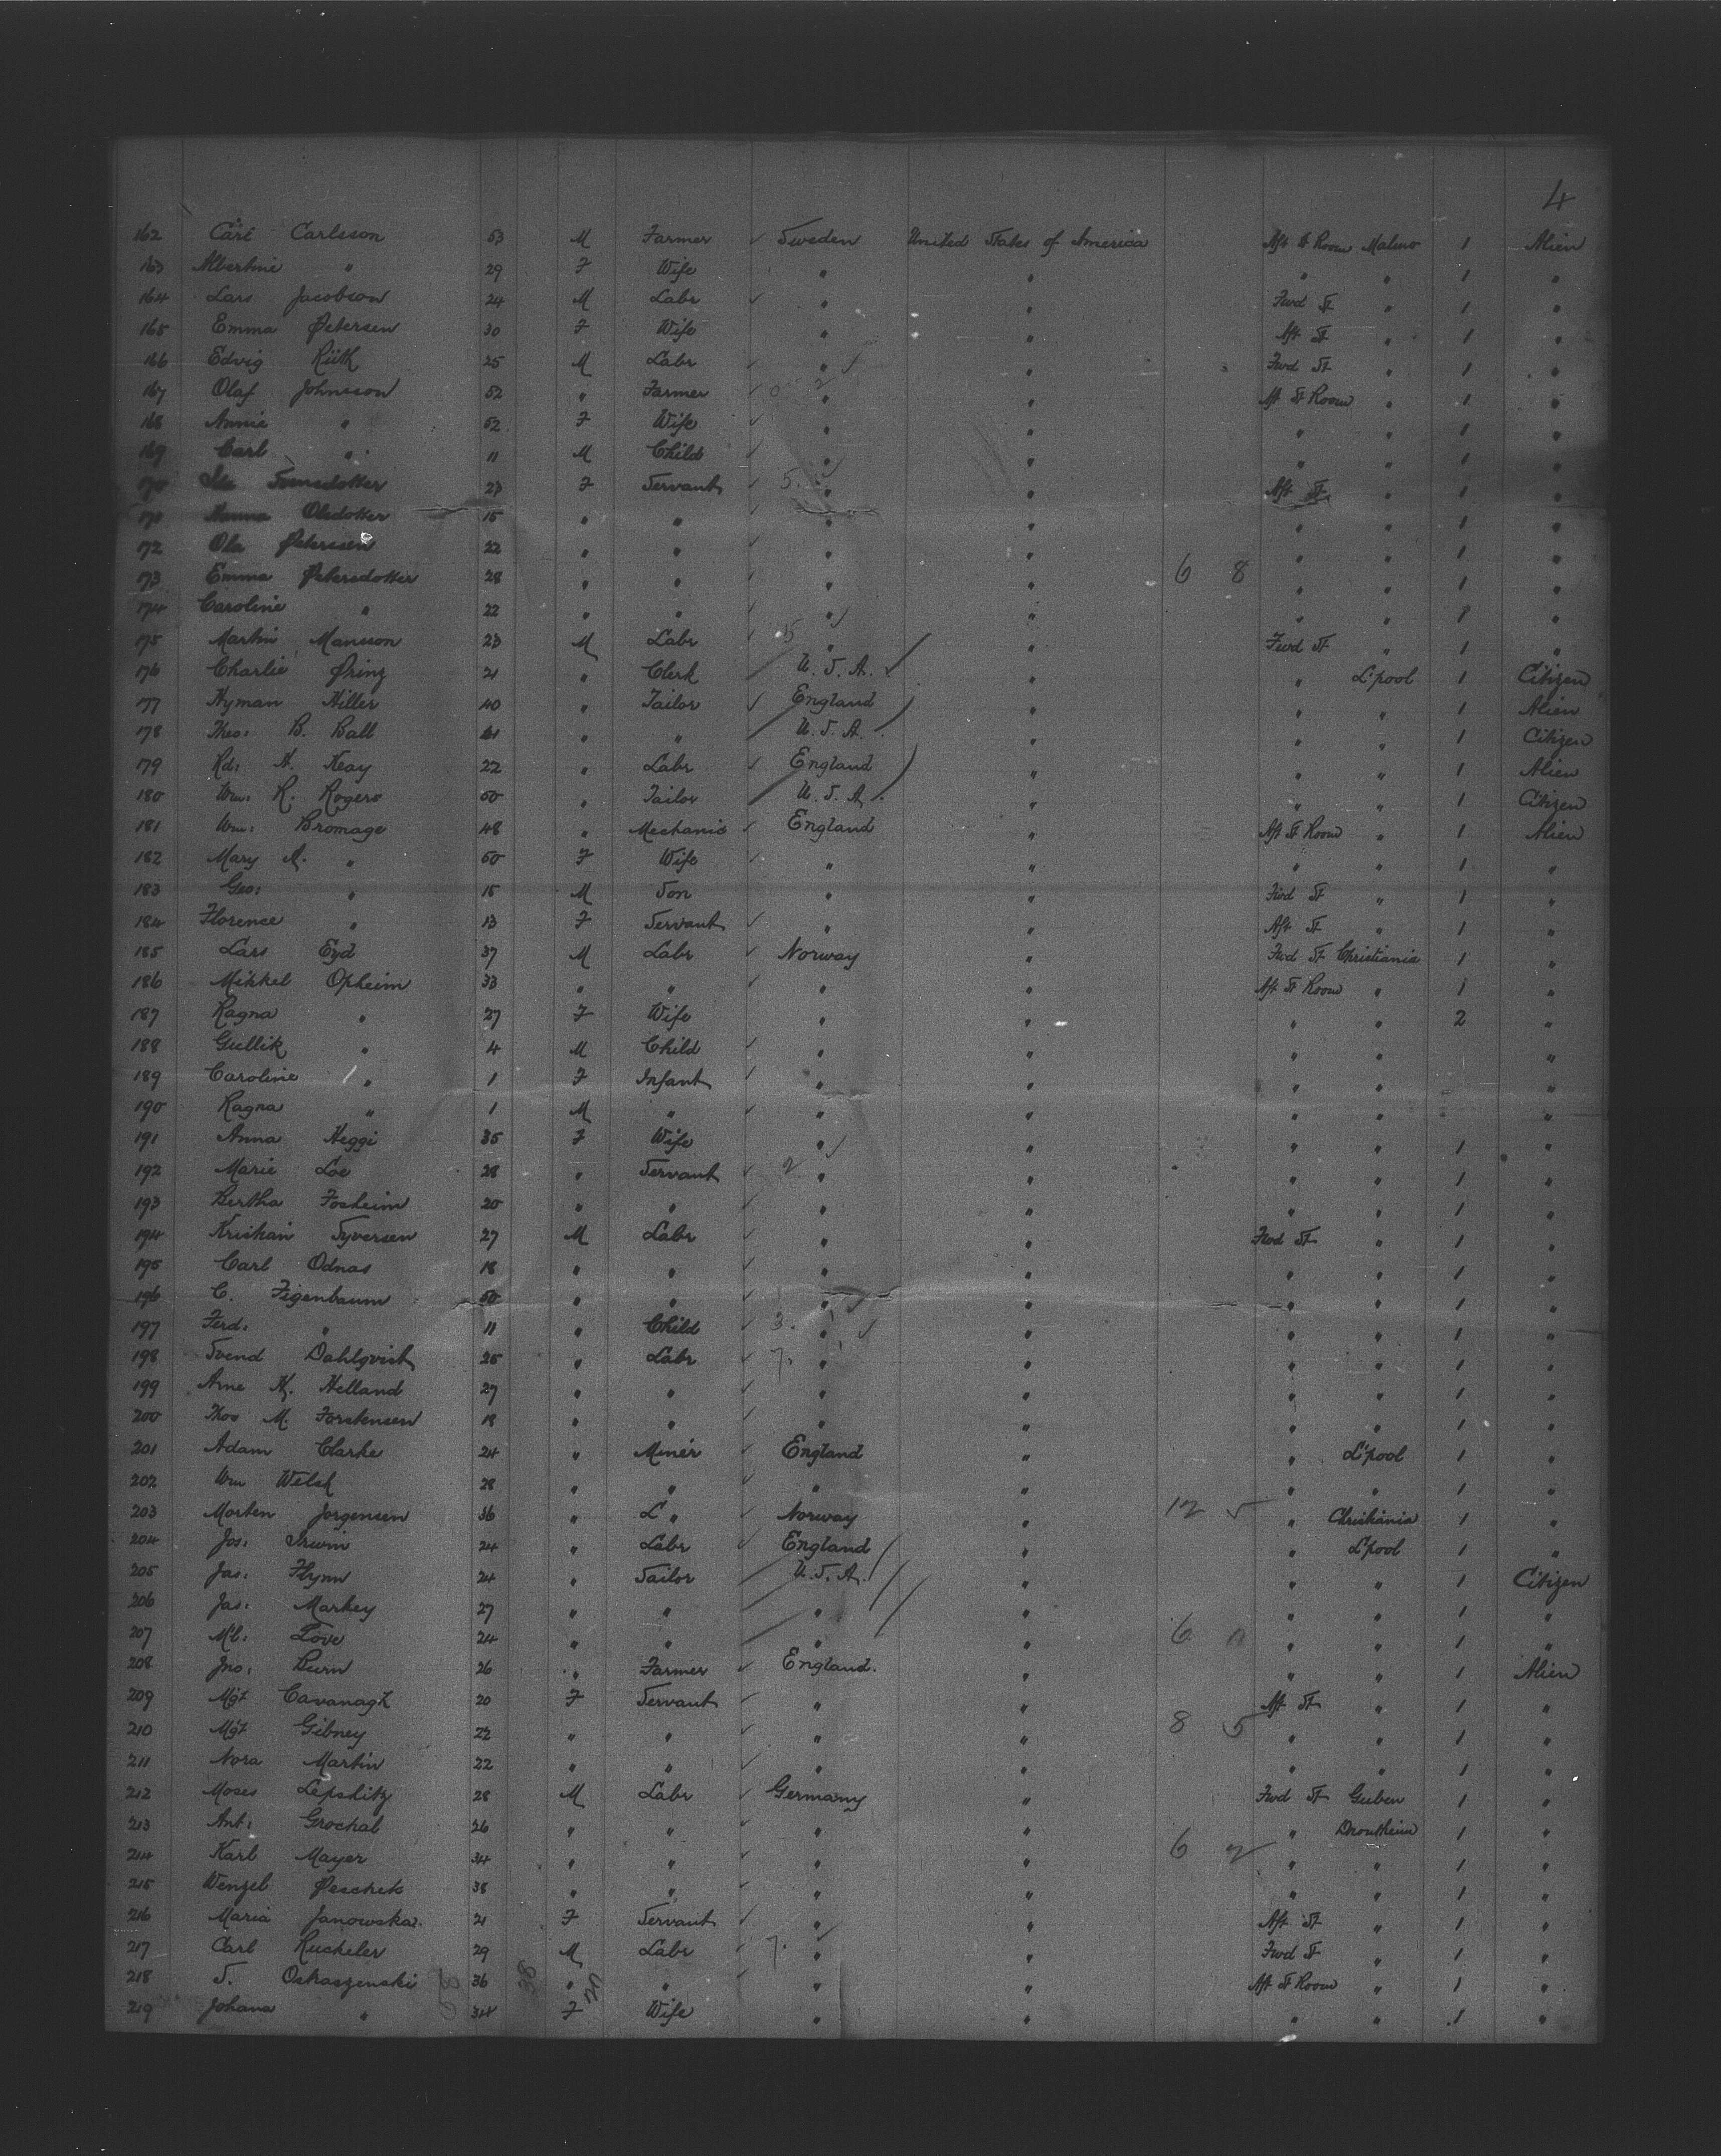 4
162 Carl Carlsson 53 M Farmer ✓ Sweden United States of America Aft St Room Malmo 1 Alien
163 Albertine " 29 F Wife " " " " 1 "
164 Lars Jacobson 24 M Labr ✓ " " Fwd St " 1 "
165 Emma Petersen 30 F Wife " " Aft St " 1 "
166 Edvig Rüth 25 M Labr ✓ " " Fwd St " 1 "
167 Olaf Johnsson 52 " Farmer ✓ " " Aft St Room " 1 "
168 Annie " 52 F Wife ✓ " " " " 1 "
169 Carl " 11 M Child ✓ " " " " 1 "
170 23 F Servant ✓ 5. " " Aft St " 1 "
171 Olsdotter 15 " " ✓ " " " " 1 "
172 Ola Petersen 22 " " ✓ " " " " 1 "
173 Emma Petersdotter 28 " " ✓ " " 6 8 " " 1 "
174 Caroline " 22 " " ✓ " " " " 1 "
175 Martin Mansson 23 M Labr ✓ 5 " " Fwd St " 1 "
176 Charlie Prinz 21 " Clerk U.S.A. " " L'pool 1 Citizen
177 Hyman Hiller 40 " Tailor ✓ England " " " 1 Alien
178 Theo: B. Ball 41 " " U.S.A. " " " 1 Citizen
179 Rd: H. Keay 22 " Labr ✓ England " " " 1 Alien
180 Wm: R. Rogers 50 " Tailor U.S.A. " " " 1 Citizen
181 Wm: Bromage 48 " Mechanic ✓ England " Aft St Room " 1 Alien
182 Mary A. " 50 F Wife ✓ " " " " 1 "
183 Geo: " 15 M Son " " Fwd St " 1 "
184 Florence " 13 F Servant ✓ " " Aft St " 1 "
185 Lars Eyd 37 M Labr ✓ Norway " Fwd St Christiania 1 "
186 Mikkel Opheim 33 " " " " Aft St Room " 1 "
187 Ragna " 27 F Wife " " " " 2 "
188 Gullik " 4 M Child ✓ " " " " "
189 Caroline " 1 F Infant ✓ " " " " "
190 Ragna " 1 M " ✓ " " " " "
191 Anna Heggi 35 F Wife " " " " 1 "
192 Marie Loe 28 " Servant ✓ 2 " " " " 1 "
193 Bertha Fosheim 20 " " ✓ " " " " 1 "
194 Kristian Syversen 27 M Labr ✓ " " Fwd St " 1 "
195 Carl Odnas 18 " " ✓ " " " " 1 "
196 C. Figenbaum 50 " " ✓ " " " " 1 "
197 Ferd. " 11 " Child ✓ 3. " " " " 1 "
198 Svend Dahlqvist 25 " Labr ✓ 7. " " " " 1 "
199 Arne K. Helland 27 " " ✓ " " " " 1 "
200 Thos M. Forstensen 18 " " ✓ " " " " 1 "
201 Adam Clarke 24 " Miner ✓ England " " L'pool 1 "
202 Wm Welsh 28 " " ✓ " " " " 1 "
203 Morten Jorgensen 36 " L " ✓ Norway " 12 5 " Christiania 1 "
204 Jos: Irwin 24 " Labr ✓ England " " L'pool 1 "
205 Jas: Flynn 24 " Sailor U.S.A. " " " 1 Citizen
206 Jas: Markey 27 " " " " " " 1 "
207 Ml: Love 24 " " " " 6 0 " " 1 "
208 Jno: Burn 26 " Farmer ✓ England. " " " 1 Alien
209 Mgt Cavanagh 20 F Servant ✓ " " Aft St " 1 "
210 Mgt Gibney 22 " " ✓ " " 8 5 " " 1 "
211 Nora Martin 22 " " ✓ " " " " 1 "
212 Moses Lepshitz 28 M Labr ✓ Germany " Fwd St Guben 1 "
213 Ant: Grochal 26 " " ✓ " " " Drontheim 1 "
214 Karl Mayer 34 " " ✓ " " 6 2 " " 1 "
215 Wenzel Peschek 38 " " ✓ " " " " 1 "
216 Maria Janowska 21 F Servant ✓ " " Aft St " 1 "
217 Carl Ruckeler 29 M Labr ✓ 7. " " Fwd St " 1 "
218 S. Ostraszenski 36 " " ✓ " " Aft St Room " 1 "
219 Johana " 34 F Wife " " " " 1 "